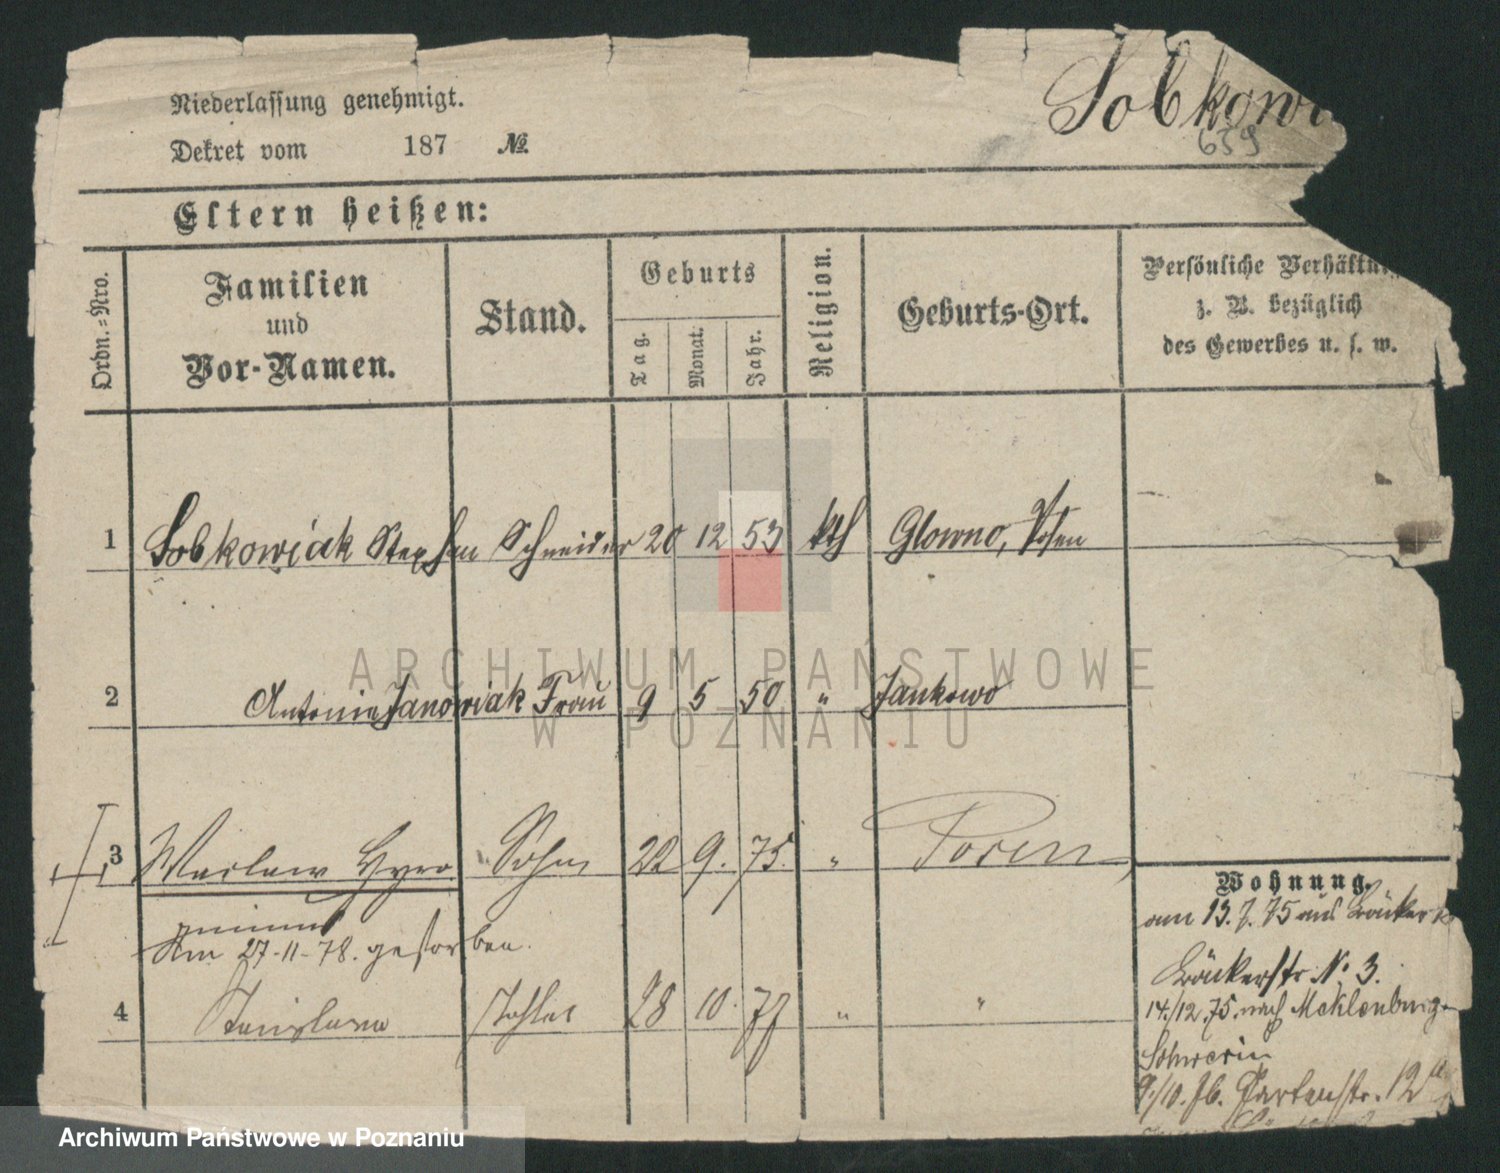 Niederlassung genehmigt.
Sobkowi
Dekret vom 187 №
659
Eltern heißen:
Ordn.=Nro.
Familien
und
Vor-Namen.
Stand.
Geburts
Tag.
Monat.
Jahr.
Religion.
Geburts-Ort.
Persönliche Verhältn
z. B. bezüglich
des Gewerbes u. s. w.
1 Sobkowiak Stephan Schneider 20 12 53 kth Glowno, Posen
ARCHIWUM PAŃSTWOWE
W POZNANIU
2 Antonina Janowiak Frau 9 5 50 " Jankowo
3 Waclaw Sohn 22 9. 75. " Posen
Am 27-11-78. gestorben.
4 Stanislawa Tochter 28 10. 77 " "
Wohnung.
am 13.7.75 aus Bäcker
Bäckerstr. No 3.
14./12.75. nach Mecklenburg-
Schwerin
9./10. 76. Gartenstr. 12
Archiwum Państwowe w Poznaniu